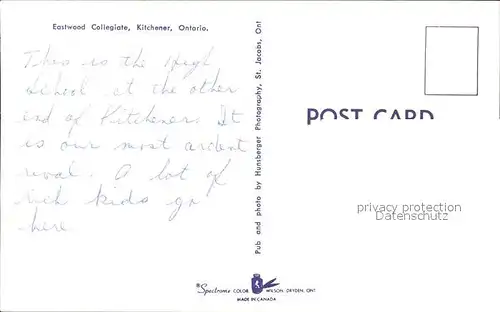 Eastwood Collegiate, Kitchener, Ontario.
This is the High
School at the other
end of Kitchener. It
is our most ardent
rival. A lot of
rich kids go
here
Pub and photo by Hunsberger Photography, St. Jacobs, Ont
POST CARD
privacy protection
Datenschutz
Spectrome COLOR WILSON, DRYDEN, ONT
MADE IN CANADA